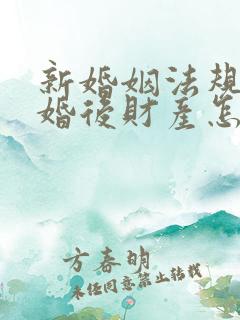 新婚姻法規
婚後財産怎
方春明
未经同意禁止转载